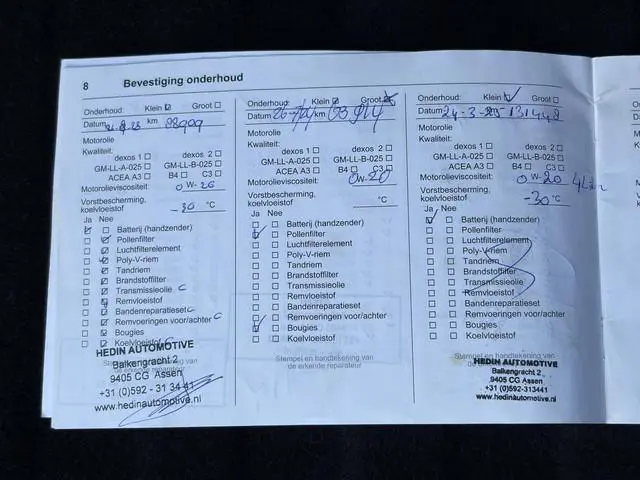 8 Bevestiging onderhoud
Onderhoud: Klein Groot
Datum km 98909
Motorolie
Kwaliteit:
dexos 1 dexos 2
GM-LL-A-025 GM-LL-B-025
ACEA A3 B4 C3
Motorolieviscositeit: 0 W-20
Vorstbescherming,
koelvloeistof -30 °C
Ja Nee
Batterij (handzender)
Pollenfilter
Luchtfilterelement
Poly-V-riem
Tandriem
Brandstoffilter
Transmissieolie C
Remvloeistof
Bandenreparatieset C
Remvoeringen voor/achter C
Bougies
Koelvloeistof
Stempel en handtekening van
de erkende reparateur
HEDIN AUTOMOTIVE
Balkengracht 2
9405 CG Assen
+31 (0)592 - 31 34 41
www.hedinautomotive.nl
Onderhoud: Klein Groot
Datum km
Motorolie
Kwaliteit:
dexos 1 dexos 2
GM-LL-A-025 GM-LL-B-025
ACEA A3 B4 C3
Motorolieviscositeit: 0W-20
Vorstbescherming,
koelvloeistof °C
Ja Nee
Batterij (handzender)
Pollenfilter
Luchtfilterelement
Poly-V-riem
Tandriem
Brandstoffilter
Transmissieolie
Remvloeistof
Bandenreparatieset
Remvoeringen voor/achter
Bougies
Koelvloeistof
Stempel en handtekening van
de erkende reparateur
Onderhoud: Klein Groot
Datum 24-3-25 131448
Motorolie
Kwaliteit:
dexos 1 dexos 2
GM-LL-A-025 GM-LL-B-025
ACEA A3 B4 C3
Motorolieviscositeit: 0 W-20
Vorstbescherming,
koelvloeistof -30 °C
Ja Nee
Batterij (handzender)
Pollenfilter
Luchtfilterelement
Poly-V-riem
Tandriem
Brandstoffilter
Transmissieolie
Remvloeistof
Bandenreparatieset
Remvoeringen voor/achter
Bougies
Koelvloeistof
Stempel en handtekening van
HEDIN AUTOMOTIVE
Balkengracht 2
9405 CG Assen
+31 (0)592-313441
www.hedinautomotive.nl